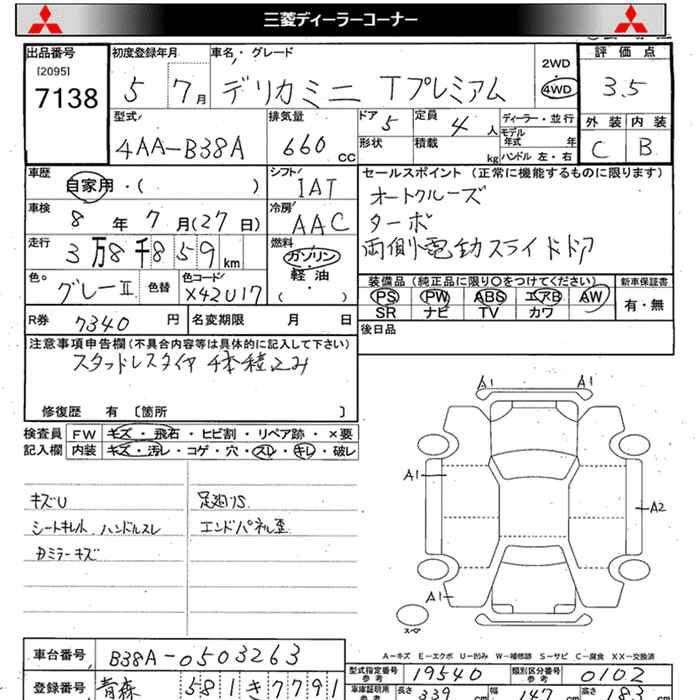 三菱ディーラーコーナー
出品番号 初度登録年月 車名・グレード 2WD 評価点
[2095]
7138 5 7月 デリカミニ Tプレミアム 4WD 3.5
型式 排気量 ドア 5 定員 4人 ディーラー・並行 外装 内装
4AA-B38A 660cc 形状 積載 kg モデル年式 年 C B
ハンドル 左・右
車歴 自家用・( ) シフト IAT セールスポイント (正常に機能するものに限ります)
車検 8年7月(27日) 冷房 AAC オートクルーズ
走行 3万8千859km 燃料 ガソリン・軽油・( ) ターボ
両側電動スライドドア
色 グレーII 色替 色コード X42U17
装備品 (純正品に限り○をつけてください) 新車保証書
PS PW ABS エアB AW 有・無
SR ナビ TV カワ
R券 7340円 名変期限 月 日 後日品
注意事項申告欄 (不具合内容等は具体的に記入して下さい)
スタッドレスタイヤ 4本積込み
修復歴 有 〔箇所 〕
検査員 FW キズ・飛石・ヒビ割・リペア跡・×要
記入欄 内装 キズ・汚レ・コゲ・穴・スレ・キレ・破レ
キズU 足廻りS
シートキレ ハンドルスレ エンドパネル歪
Dミラーキズ
A1 A1
A1 A2
A1
スペア
A-キズ E-エクボ U-凹み W-補修跡 S-サビ C-腐食 XX-交換済
車台番号 B38A-0503263 型式指定番号 参考 19540 類別区分番号 参考 0102
登録番号 青森 581 き 7791 車庫証明用 参考 長さ 339cm 幅 147cm 高さ 183cm